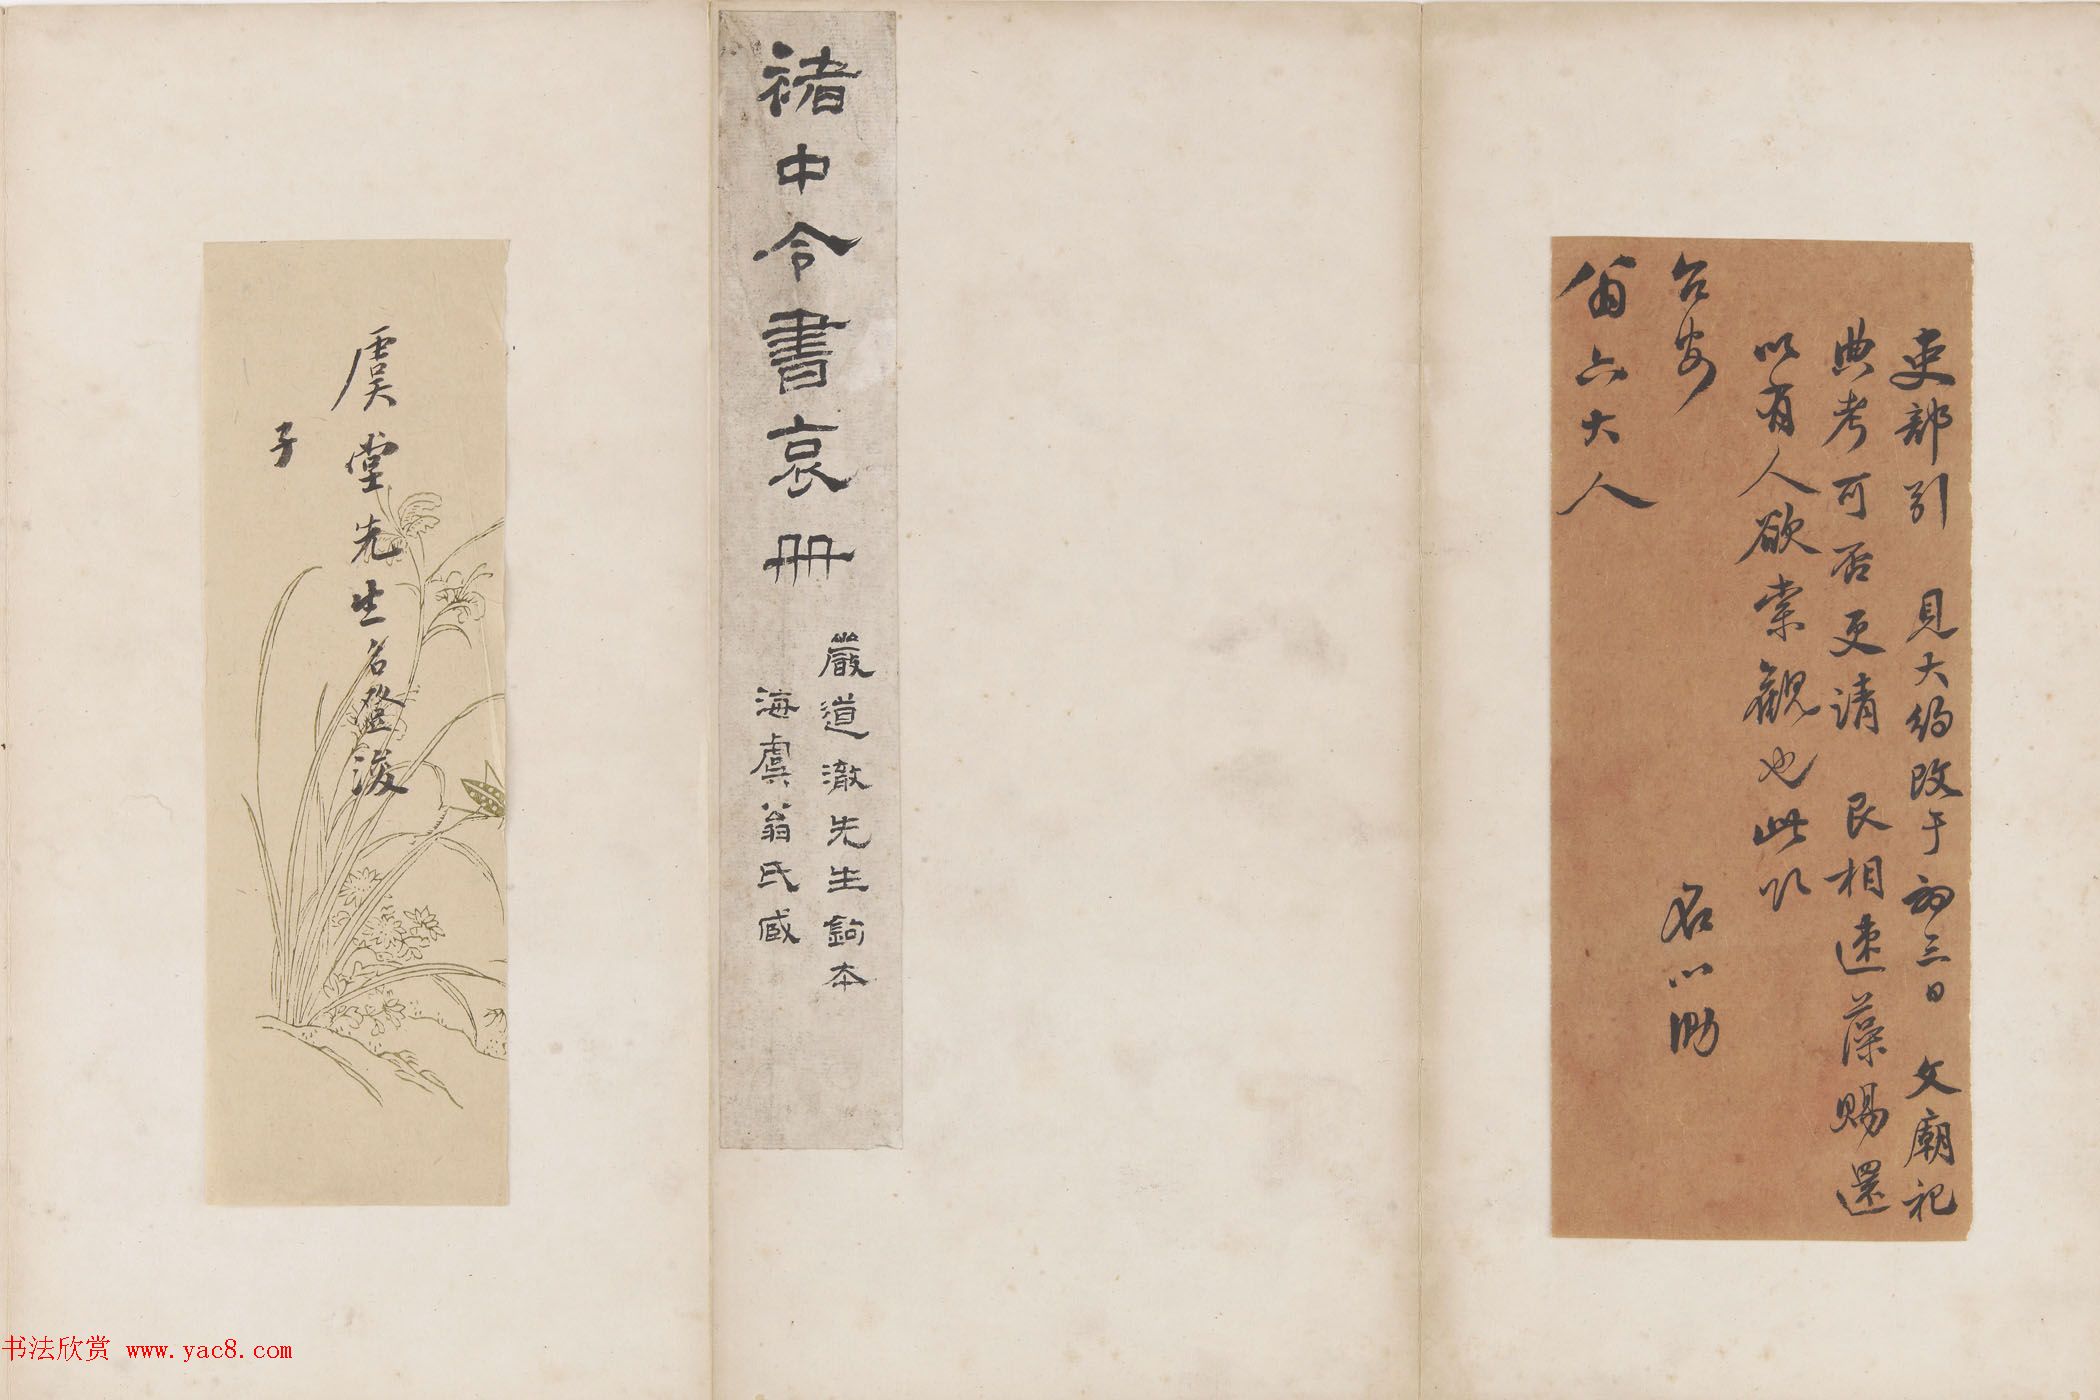 吏部引 見大約改于初三日 文廟祀
典考可否更請 艮相速藻賜還
以有人欲索觀也此叩
台安 名心泐
翁六大人
褚中令書哀冊
嚴道澈先生鉤本
海虞翁氏臧
虞堂先生名登浚
子
书法欣赏 www.yac8.com